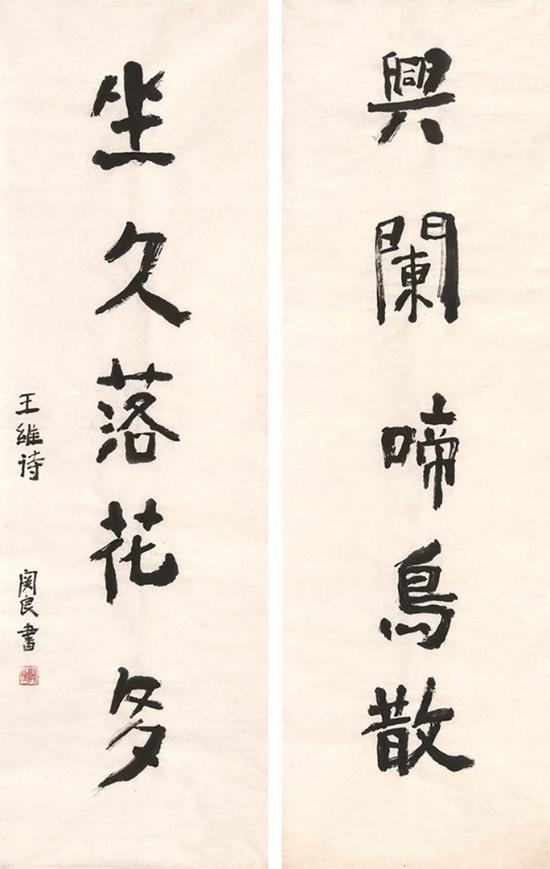 興闌啼鳥散
坐久落花多
王維诗
関良書